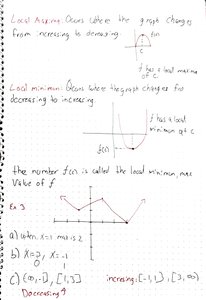 Local Maxima: Occurs where the graph changes
from increasing to decreasing.
f(c)
c
f has a local maxima
at c.
Local minimum: Occurs where the graph changes from
decreasing to increasing.
f has a local
minimum at c
the number f(c) is called the local minimum, max
Value of f
Ex 3
a) when x=1 max is 2
b) x=3, x=-1
0
c) (∞,-1], [1,3] increasing: [-1,1], [3,∞)
Decreasing